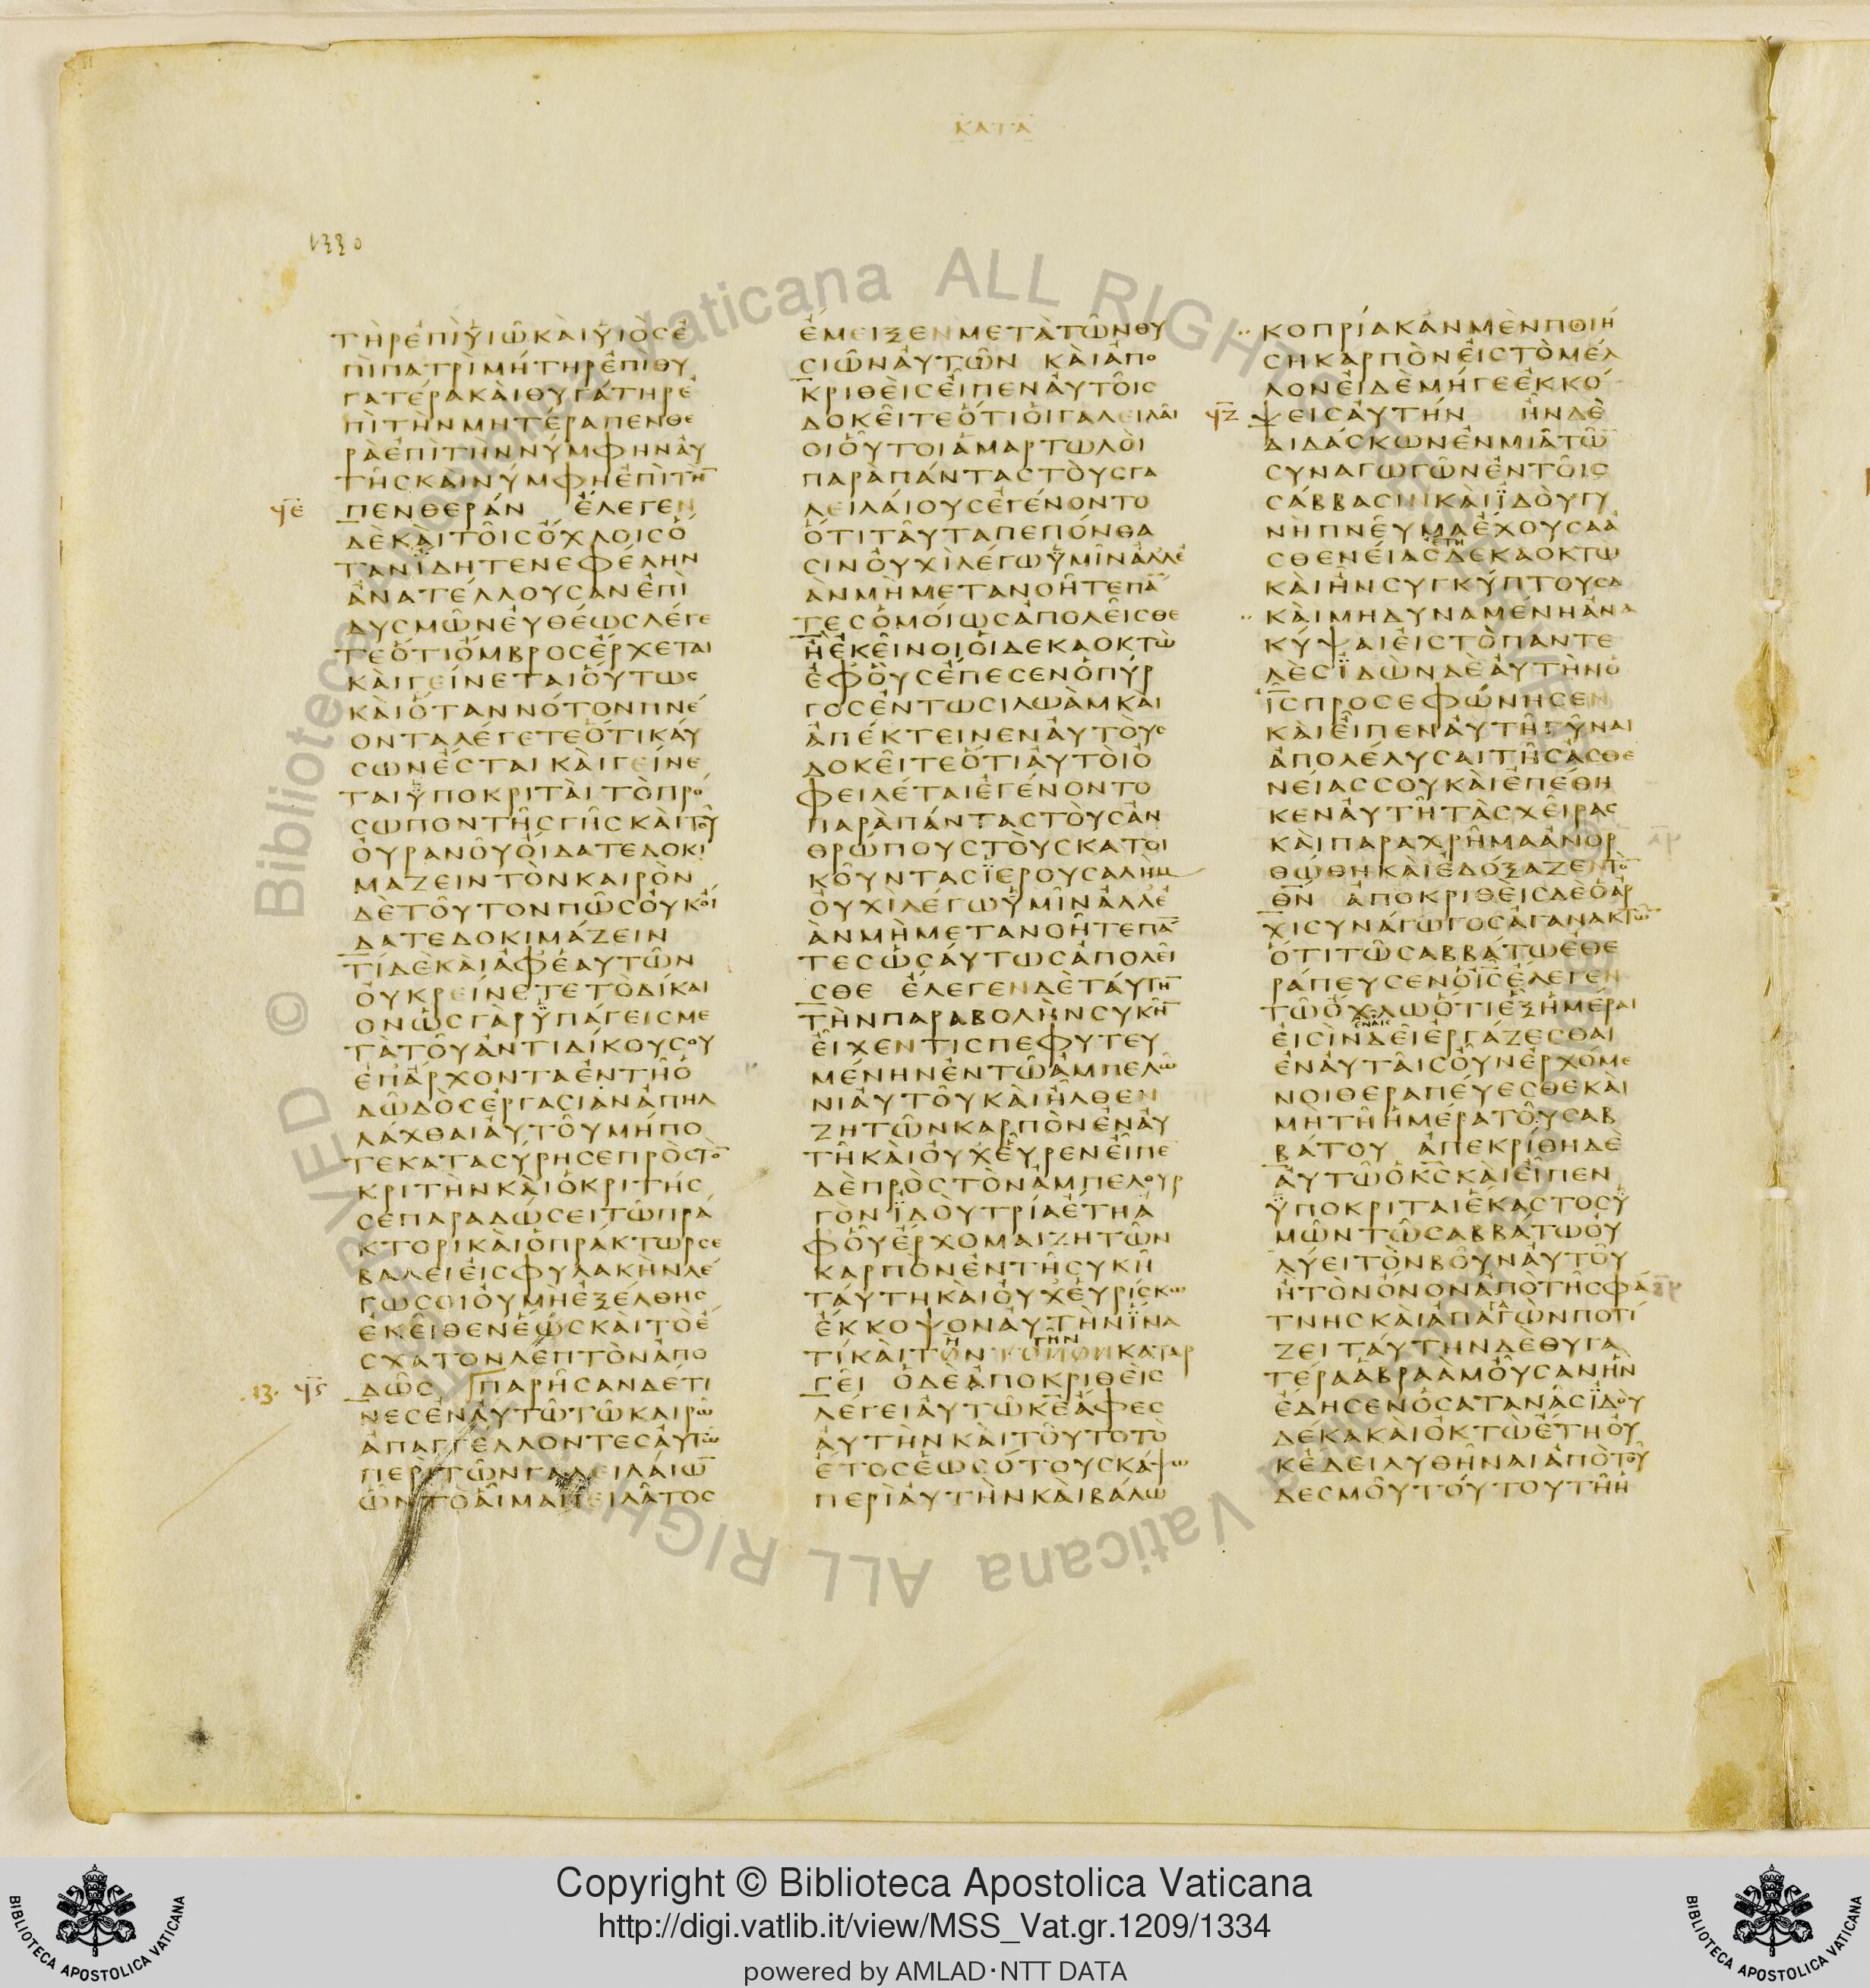 ΚΑΤΑ
1330
ΤΗΡΕΠΙΥΙΩΚΑΙΥΙΟΣΕ
ΠΙΠΑΤΡΙΜΗΤΗΡΕΠΙΘΥ
ΓΑΤΕΡΑΚΑΙΘΥΓΑΤΗΡΕ
ΠΙΤΗΝΜΗΤΕΡΑΠΕΝΘΕ
ΡΑΕΠΙΤΗΝΝΥΜΦΗΝΑΥ
ΤΗΣΚΑΙΝΥΜΦΗΕΠΙΤΗ̅
ϞΕ ΠΕΝΘΕΡΑΝ ΕΛΕΓΕΝ
ΔΕΚΑΙΤΟΙΣΟΧΛΟΙΣΟ
ΤΑΝΪΔΗΤΕΝΕΦΕΛΗΝ
ΑΝΑΤΕΛΛΟΥΣΑΝΕΠΙ
ΔΥΣΜΩΝΕΥΘΕΩΣΛΕΓΕ
ΤΕΟΤΙΟΜΒΡΟΣΕΡΧΕΤΑΙ
ΚΑΙΓΕΙΝΕΤΑΙΟΥΤΩΣ
ΚΑΙΟΤΑΝΝΟΤΟΝΠΝΕ
ΟΝΤΑΛΕΓΕΤΕΟΤΙΚΑΥ
ΣΩΝΕΣΤΑΙΚΑΙΓΕΙΝΕ
ΤΑΙΫΠΟΚΡΙΤΑΙΤΟΠΡΟ
ΣΩΠΟΝΤΗΣΓΗΣΚΑΙΤΟΥ
ΟΥΡΑΝΟΥΟΙΔΑΤΕΔΟΚΙ
ΜΑΖΕΙΝΤΟΝΚΑΙΡΟΝ
ΔΕΤΟΥΤΟΝΠΩΣΟΥΚΟΙ
ΔΑΤΕΔΟΚΙΜΑΖΕΙΝ
ΤΙΔΕΚΑΙΑΦΕΑΥΤΩΝ
ΟΥΚΡΕΙΝΕΤΕΤΟΔΙΚΑΙ
ΟΝΩΣΓΑΡΫΠΑΓΕΙΣΜΕ
ΤΑΤΟΥΑΝΤΙΔΙΚΟΥΣΟΥ
ΕΠΑΡΧΟΝΤΑΕΝΤΗΟ
ΔΩΔΟΣΕΡΓΑΣΙΑΝΑΠΗΛ
ΛΑΧΘΑΙΑΥΤΟΥΜΗΠΟ
ΤΕΚΑΤΑΣΥΡΗΣΕΠΡΟΣΤΟ̅
ΚΡΙΤΗΝΚΑΙΟΚΡΙΤΗΣ
ΣΕΠΑΡΑΔΩΣΕΙΤΩΠΡΑ
ΚΤΟΡΙΚΑΙΟΠΡΑΚΤΩΡΣΕ
ΒΑΛΕΙΕΙΣΦΥΛΑΚΗΝΛΕ
ΓΩΣΟΙΟΥΜΗΕΞΕΛΘΗΣ
ΕΚΕΙΘΕΝΕΩΣΚΑΙΤΟΕ
ΣΧΑΤΟΝΛΕΠΤΟΝΑΠΟ
.13. Ϟϛ ΔΩΣ ΠΑΡΗΣΑΝΔΕΤΙ
ΝΕΣΕΝΑΥΤΩΤΩΚΑΙΡΩ
ΑΠΑΓΓΕΛΛΟΝΤΕΣΑΥΤΩ
ΠΕΡΙΤΩΝΓΑΛΕΙΛΑΙΩ̅
ΩΝΤΟΑΙΜΑΠΕΙΛΑΤΟΣ
ΕΜΕΙΞΕΝΜΕΤΑΤΩΝΘΥ
ΣΙΩΝΑΥΤΩΝ ΚΑΙΑΠΟ
ΚΡΙΘΕΙΣΕΙΠΕΝΑΥΤΟΙΣ
ΔΟΚΕΙΤΕΟΤΙΟΙΓΑΛΕΙΛΑΙ
ΟΙΟΥΤΟΙΑΜΑΡΤΩΛΟΙ
ΠΑΡΑΠΑΝΤΑΣΤΟΥΣΓΑ
ΛΕΙΛΑΙΟΥΣΕΓΕΝΟΝΤΟ
ΟΤΙΤΑΥΤΑΠΕΠΟΝΘΑ
ΣΙΝΟΥΧΙΛΕΓΩΫΜΙΝΑΛΛΕ
ΑΝΜΗΜΕΤΑΝΟΗΤΕΠΑ̅
ΤΕΣΟΜΟΙΩΣΑΠΟΛΕΙΣΘΕ
ΗΕΚΕΙΝΟΙΟΙΔΕΚΑΟΚΤΩ
ΕΦΟΥΣΕΠΕΣΕΝΟΠΥΡ
ΓΟΣΕΝΤΩΣΙΛΩΑΜΚΑΙ
ΑΠΕΚΤΕΙΝΕΝΑΥΤΟΥΣ
ΔΟΚΕΙΤΕΟΤΙΑΥΤΟΙΟ
ΦΕΙΛΕΤΑΙΕΓΕΝΟΝΤΟ
ΠΑΡΑΠΑΝΤΑΣΤΟΥΣΑΝ
ΘΡΩΠΟΥΣΤΟΥΣΚΑΤΟΙ
ΚΟΥΝΤΑΣΪΕΡΟΥΣΑΛΗΜ
ΟΥΧΙΛΕΓΩΫΜΙΝΑΛΛΕ
ΑΝΜΗΜΕΤΑΝΟΗΤΕΠΑ̅
ΤΕΣΩΣΑΥΤΩΣΑΠΟΛΕΙ
ΣΘΕ ΕΛΕΓΕΝΔΕΤΑΥΤΗ̅
ΤΗΝΠΑΡΑΒΟΛΗΝΣΥΚΗ̅
ΕΙΧΕΝΤΙΣΠΕΦΥΤΕΥ
ΜΕΝΗΝΕΝΤΩΑΜΠΕΛΩ
ΝΙΑΥΤΟΥΚΑΙΗΛΘΕΝ
ΖΗΤΩΝΚΑΡΠΟΝΕΝΑΥ
ΤΗΚΑΙΟΥΧΕΥΡΕΝΕΙΠΕ
ΔΕΠΡΟΣΤΟΝΑΜΠΕΛΟΥΡ
ΓΟΝΪΔΟΥΤΡΙΑΕΤΗΑ
ΦΟΥΕΡΧΟΜΑΙΖΗΤΩΝ
ΚΑΡΠΟΝΕΝΤΗΣΥΚΗ
ΤΑΥΤΗΚΑΙΟΥΧΕΥΡΙΣΚΩ
ΕΚΚΟΨΟΝΑΥΤΗΝΪΝΑ
ΤΙΚΑΙΤΟΝΤΟΠΟΝΚΑΤΑΡ
ΓΕΙ ΟΔΕΑΠΟΚΡΙΘΕΙΣ
ΛΕΓΕΙΑΥΤΩΚΕΑΦΕΣ
ΑΥΤΗΝΚΑΙΤΟΥΤΟΤΟ
ΕΤΟΣΕΩΣΟΤΟΥΣΚΑΨΩ
ΠΕΡΙΑΥΤΗΝΚΑΙΒΑΛΩ
ΚΟΠΡΙΑΚΑΝΜΕΝΠΟΙΗ
ΣΗΚΑΡΠΟΝΕΙΣΤΟΜΕΛ
ΛΟΝΕΙΔΕΜΗΓΕΕΚΚΟ
ϞΖ ΨΕΙΣΑΥΤΗΝ ΗΝΔΕ
ΔΙΔΑΣΚΩΝΕΝΜΙΑΤΩ̅
ΣΥΝΑΓΩΓΩΝΕΝΤΟΙΣ
ΣΑΒΒΑΣΙΝΚΑΙΪΔΟΥΓΥ
ΝΗΠΝΕΥΜΑΕΧΟΥΣΑΑ
ΕΤΗ
ΣΘΕΝΕΙΑΣΔΕΚΑΟΚΤΩ
ΚΑΙΗΝΣΥΓΚΥΠΤΟΥΣΑ
ΚΑΙΜΗΔΥΝΑΜΕΝΗΑΝΑ
ΚΥΨΑΙΕΙΣΤΟΠΑΝΤΕ
ΛΕΣΪΔΩΝΔΕΑΥΤΗΝΟ
ΙΣΠΡΟΣΕΦΩΝΗΣΕΝ
ΚΑΙΕΙΠΕΝΑΥΤΗΓΥΝΑΙ
ΑΠΟΛΕΛΥΣΑΙΤΗΣΑΣΘΕ
ΝΕΙΑΣΣΟΥΚΑΙΕΠΕΘΗ
ΚΕΝΑΥΤΗΤΑΣΧΕΙΡΑΣ
ΚΑΙΠΑΡΑΧΡΗΜΑΑΝΟΡ
ΘΩΘΗΚΑΙΕΔΟΞΑΖΕΝΤΟ̅
ΘΝ ΑΠΟΚΡΙΘΕΙΣΔΕΟΑΡ
ΧΙΣΥΝΑΓΩΓΟΣΑΓΑΝΑΚΤΩ̅
ΟΤΙΤΩΣΑΒΒΑΤΩΕΘΕ
ΡΑΠΕΥΣΕΝΟΙΣΕΛΕΓΕΝ
ΤΩΟΧΛΩΟΤΙΕΞΗΜΕΡΑΙ
ΕΝΑΙΣ
ΕΙΣΙΝΔΕΙΕΡΓΑΖΕΣΘΑΙ
ΕΝΑΥΤΑΙΣΟΥΝΕΡΧΟΜΕ
ΝΟΙΘΕΡΑΠΕΥΕΣΘΕΚΑΙ
ΜΗΤΗΗΜΕΡΑΤΟΥΣΑΒ
ΒΑΤΟΥ ΑΠΕΚΡΙΘΗΔΕ
ΑΥΤΩΟΚΣΚΑΙΕΙΠΕΝ
ΫΠΟΚΡΙΤΑΙΕΚΑΣΤΟΣΫ
ΜΩΝΤΩΣΑΒΒΑΤΩΟΥ
ΛΥΕΙΤΟΝΒΟΥΝΑΥΤΟΥ
ΗΤΟΝΟΝΟΝΑΠΟΤΗΣΦΑ
ΤΝΗΣΚΑΙΑΠΑΓΩΝΠΟΤΙ
ΖΕΙΤΑΥΤΗΝΔΕΘΥΓΑ
ΤΕΡΑΑΒΡΑΑΜΟΥΣΑΝΗΝ
ΕΔΗΣΕΝΟΣΑΤΑΝΑΣΪΔΟΥ
ΔΕΚΑΚΑΙΟΚΤΩΕΤΗΟΥ
ΚΕΔΕΙΛΥΘΗΝΑΙΑΠΟΤΟΥ
ΔΕΣΜΟΥΤΟΥΤΟΥΤΗΗ
Copyright © Biblioteca Apostolica Vaticana
http://digi.vatlib.it/view/MSS_Vat.gr.1209/1334
powered by AMLAD·NTT DATA
BIBLIOTECA APOSTOLICA VATICANA
BIBLIOTECA APOSTOLICA VATICANA